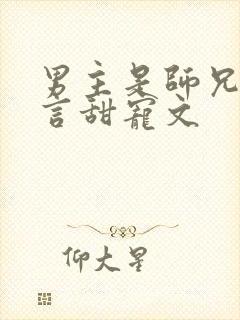 男主是師兄
言甜寵文
仰大星